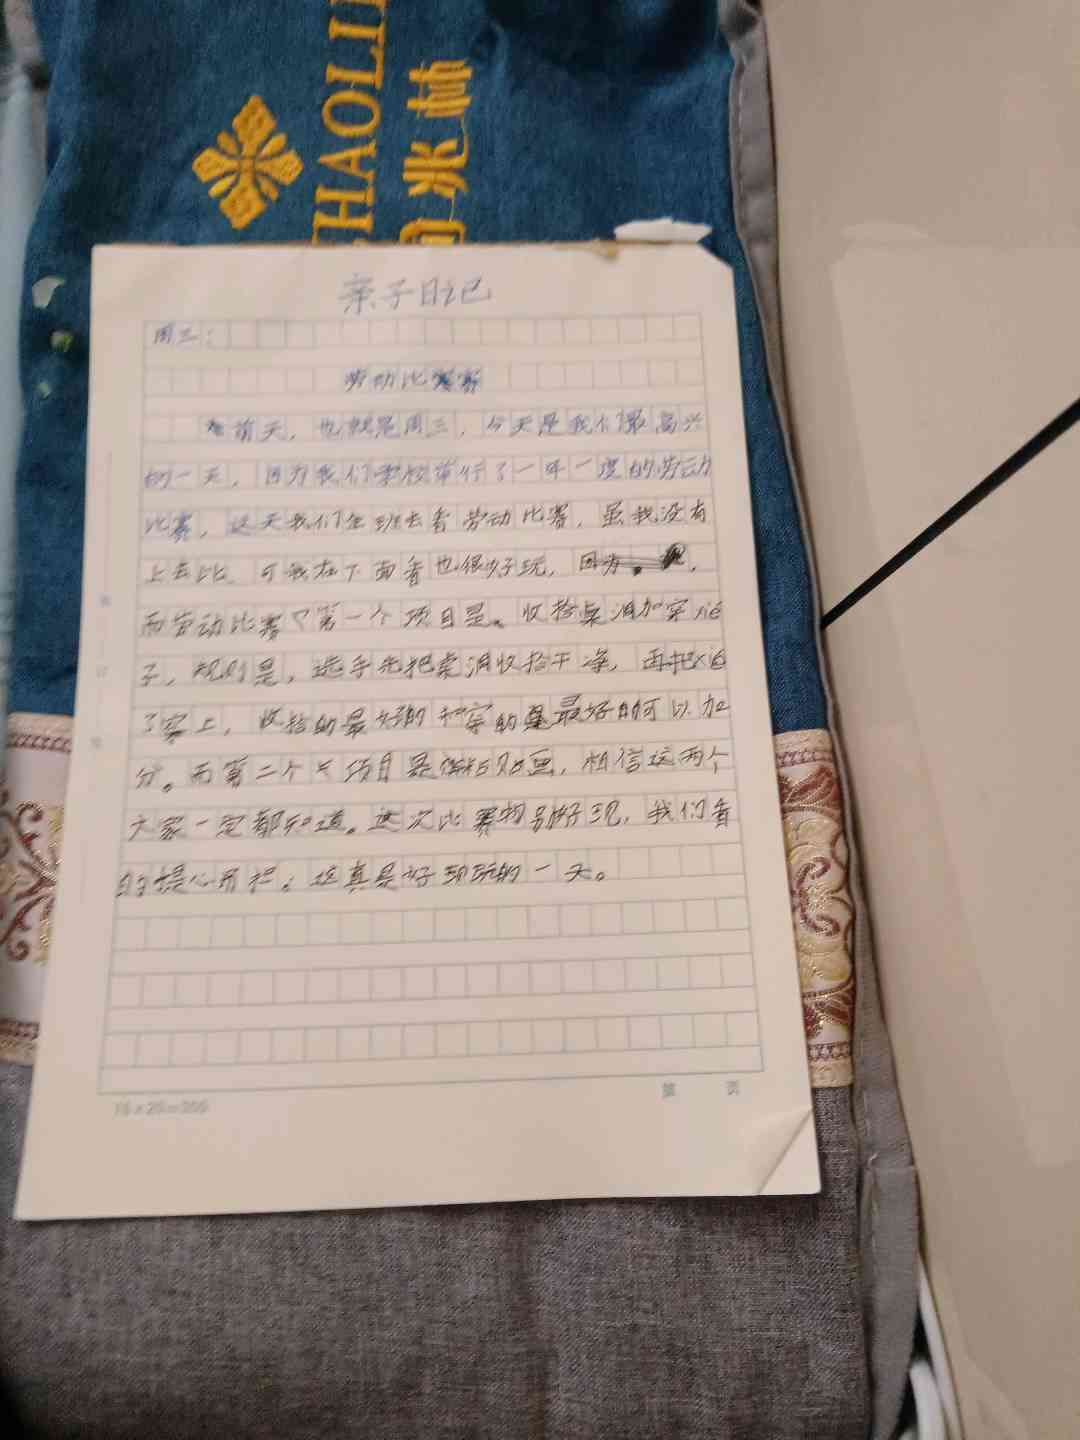 HAOLI
米林
亲子日记
周三:
劳动比赛
前天，也就是周三，今天是我们最高兴
的一天，因为我们学校举行了一年一度的劳动
比赛，这天我们全班去看劳动比赛，虽我没有
上去比，可我在下面看也很好玩，因为，
而劳动比赛第一个项目是。收拾桌洞加穿xie
子，规则是，选手先把桌洞收拾干净，再把xie
子穿上，收拾的最好的和穿的最好的可以加
分。而第二个项目是粘贴画，相信这两个
大家一定都知道。这次比赛特别好玩，我们看
的提心吊胆，这真是好玩的一天。
15×20=300
第 页